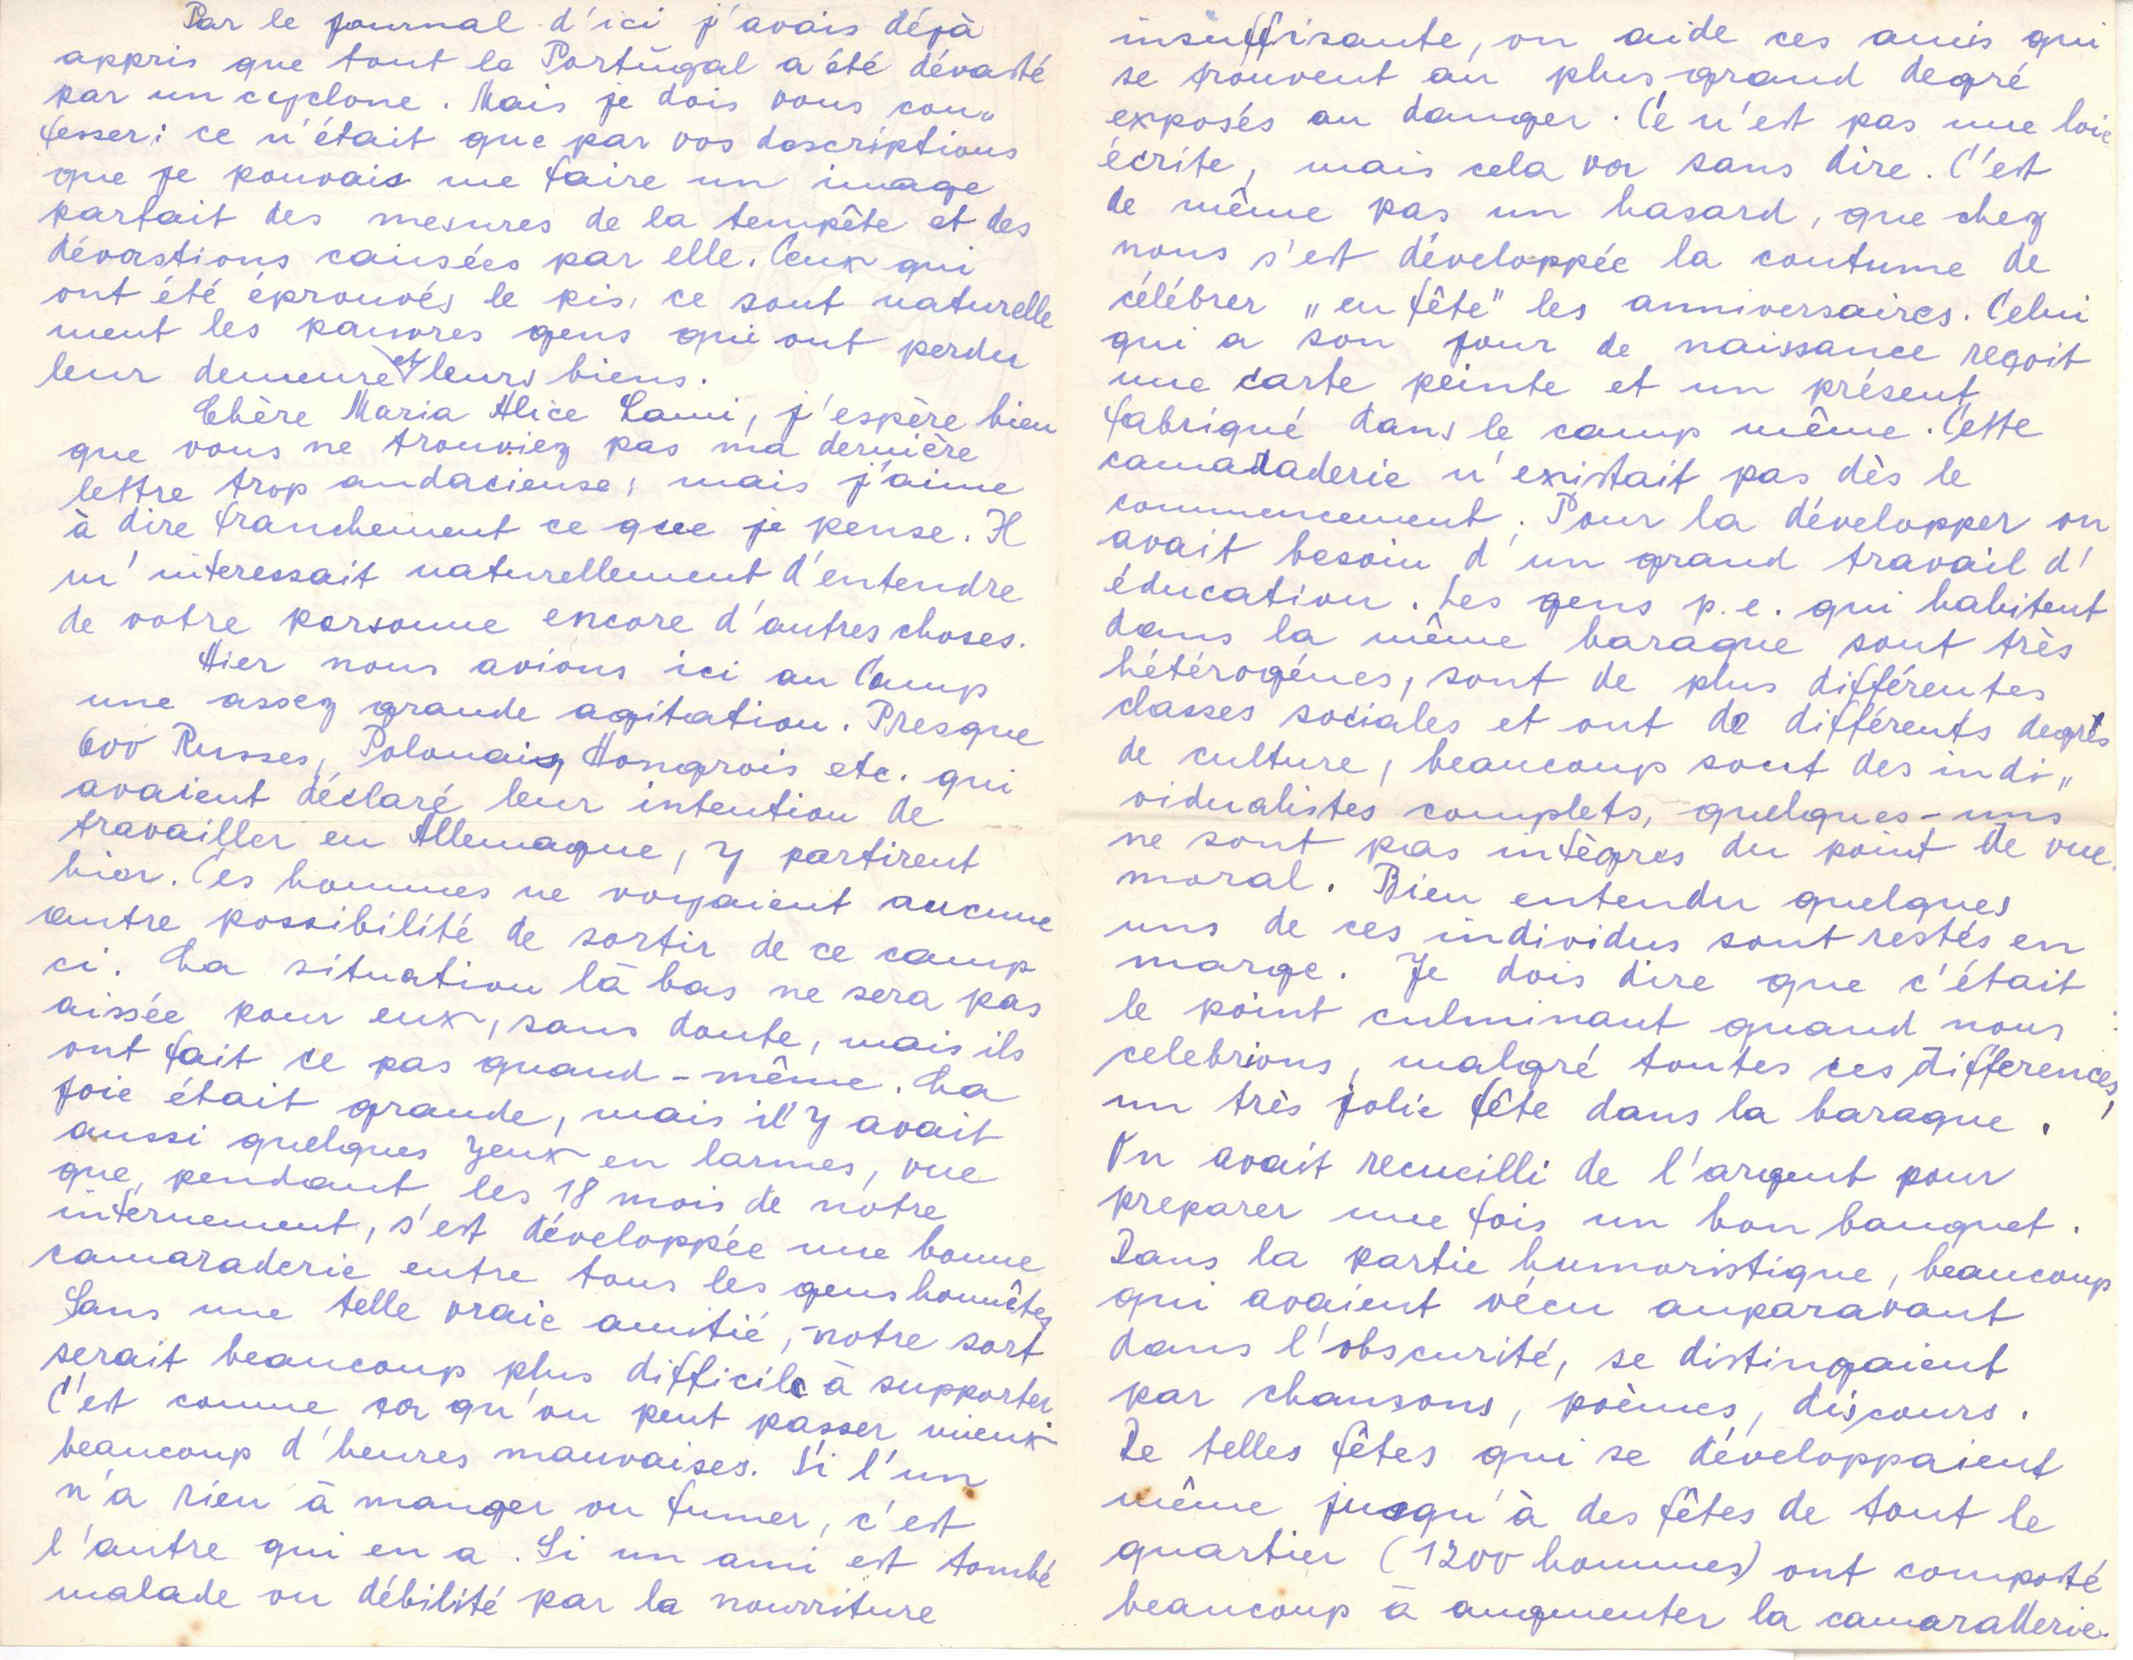 Par le journal d'ici j'avais déjà
appris que tout le Portugal a été dévasté
par un cyclone. Mais je dois vous con„
fesser: ce n'était que par vos descriptions
que je pouvais me faire un image
parfait des mesures de la tempête et des
dévastions causées par elle. Ceux qui
ont été éprouvés le pis, ce sont naturelle
ment les pauvres gens qui ont perdu
leur demeure et leurs biens.
Chère Maria Alice Lami, j'espère bien
que vous ne trouviez pas ma dernière
lettre trop audacieuse; mais j'aime
à dire franchement ce que je pense. Il
m'interessait naturellement d'entendre
de votre personne encore d'autres choses.
Hier nous avions ici au Camp
une assez grande agitation. Presque
600 Russes, Polonais, Hongrois etc. qui
avaient déclaré leur intention de
travailler en Allemagne, y partirent
hier. Ces hommes ne voyaient aucune
autre possibilité de sortir de ce camp
ci. La situation là bas ne sera pas
aissée pour eux, sans doute, mais ils
ont fait ce pas quand-même. La
joie était grande, mais il y avait
aussi quelques yeux en larmes, vue
que, pendant les 18 mois de notre
internement, s'est développée une bonne
camaraderie entre tous les gens honnêtes
Sans une telle vraie amitié, notre sort
serait beaucoup plus difficile à supporter
C'est comme ça qu'on peut passer mieux
beaucoup d'heures mauvaises. Si l'un
n'a rien à manger ou fumer, c'est
l'autre qui en a. Si un ami est tombé
malade ou débilité par la nourriture
insuffisante, on aide ces amis qui
se trouvent au plus grand degré
exposés au danger. Ce n'est pas une loie
écrite, mais cela va sans dire. C'est
de même pas un hasard, que chez
nous s'est développée la coutume de
célébrer „en fête" les anniversaires. Celui
qui a son jour de naissance reçoit
une carte peinte et un présent
fabriqué dans le camp même. Cette
camaraderie n'existait pas dès le
commencement. Pour la développer on
avait besoin d'un grand travail d'
éducation. Les gens p.e. qui habitent
dans la même baraque sont très
hétérogénes, sont de plus différentes
classes sociales et ont de différents degrés
de culture, beaucoup sont des indi„
vidualistes complets, quelques-uns
ne sont pas intègres du point de vue
moral. Bien entendu quelques
uns de ces individus sont restés en
marge. Je dois dire que c'était
le point culminant quand nous
celebrions, malgré toutes ces differences,
un très jolie fête dans la baraque.
On avait recueilli de l'argent pour
preparer une fois un bon banquet.
Dans la partie humoristique, beaucoup
qui avaient vécu auparavant
dans l'obscurité, se distingaient
par chansons, poèmes, discours.
De telles fêtes qui se développaient
même jusqu'à des fêtes de tout le
quartier (1200 hommes) ont composté
beaucoup à augmenter la camaraderie.